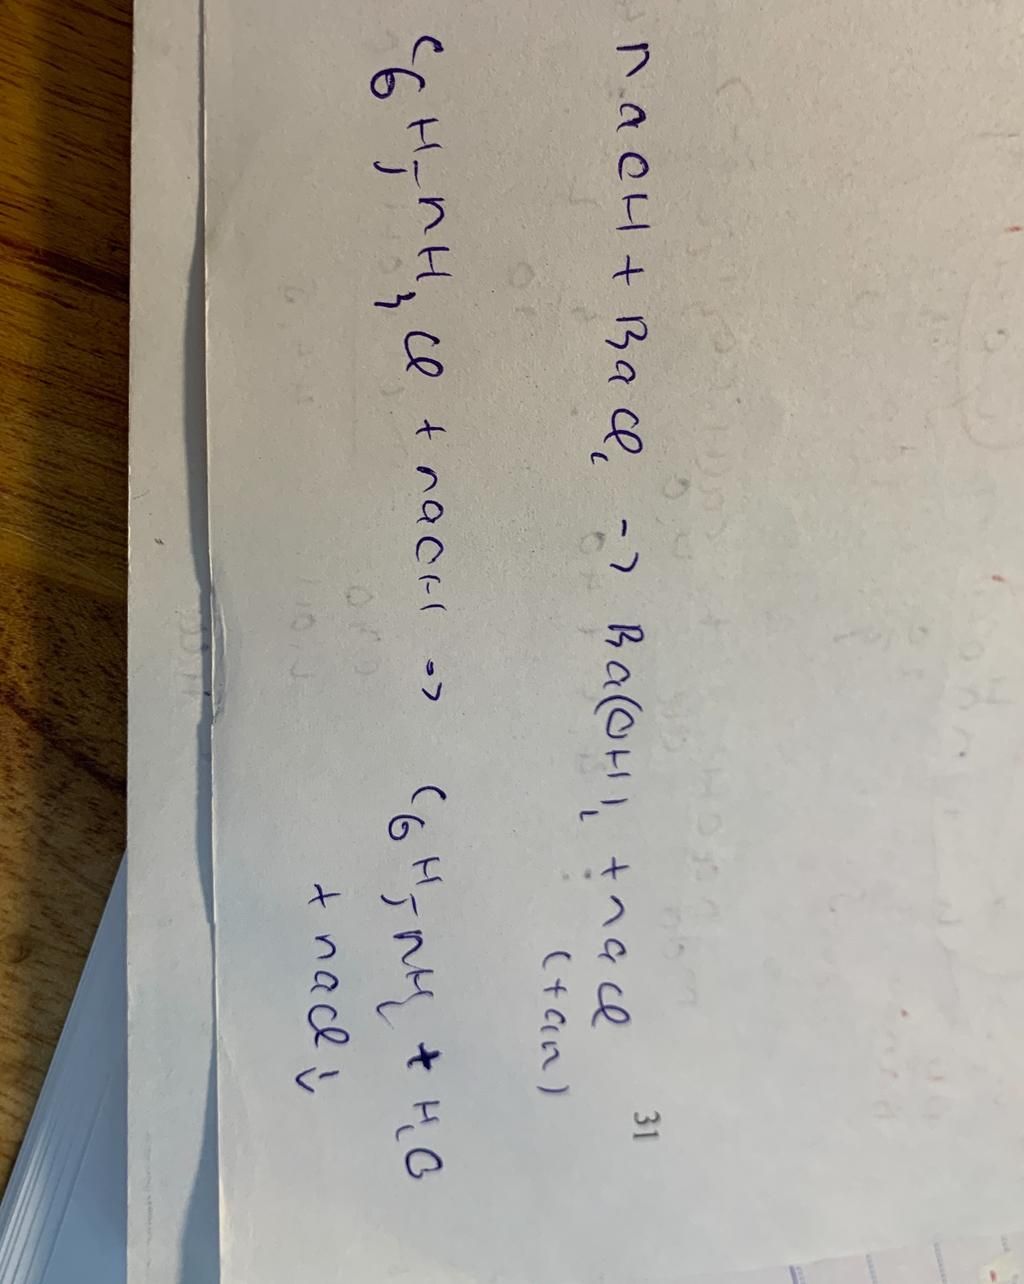 31
naOH + BaCl₂ -> Ba(OH)₂ + nacl
(tan)
C₆H₅-nH₃Cl + naOH -> C₆H₅-nH₂ + H₂O
+ nacl ↓